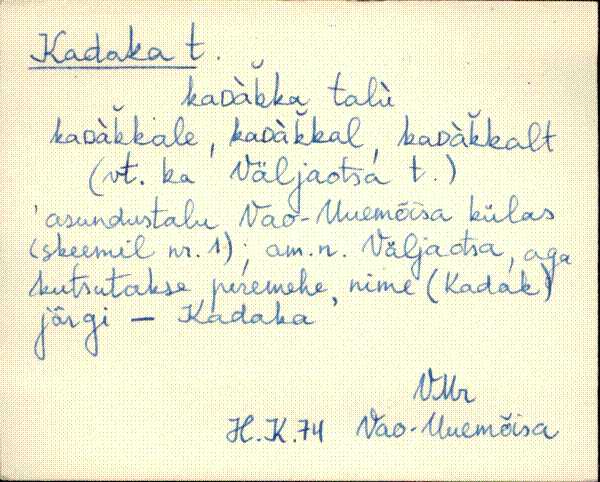 Kadaka t.
kaDàk̆ka talù
kaDàk̆kale, kaDàk̆kal, kaDàk̆kalt
(vt. ka Väljaotsa t.)
asundustalu Vao-Uuemõisa külas
(skeemil nr. 1); am.n. Väljaotsa, aga
kutsutakse peremehe nime (Kadak)
järgi – Kadaka
VMr
H.K.74 Vao-Uuemõisa